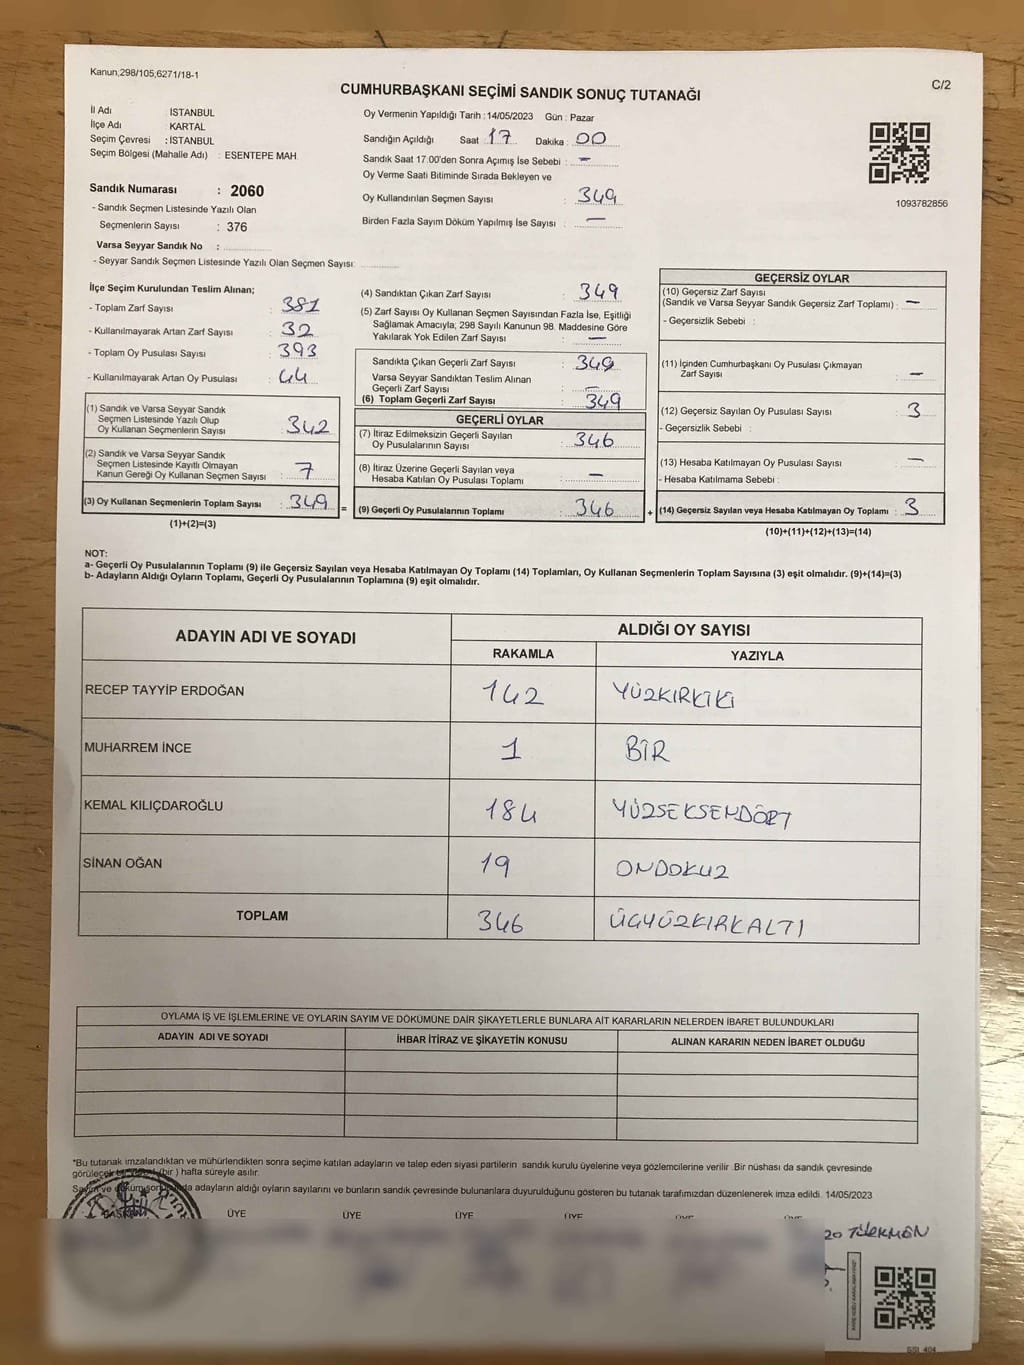 Kanun,298/105,6271/18-1
C/2
CUMHURBAŞKANI SEÇİMİ SANDIK SONUÇ TUTANAĞI
İl Adı : İSTANBUL
İlçe Adı : KARTAL
Seçim Çevresi : İSTANBUL
Seçim Bölgesi (Mahalle Adı) : ESENTEPE MAH.
Sandık Numarası : 2060
- Sandık Seçmen Listesinde Yazılı Olan
Seçmenlerin Sayısı : 376
Varsa Seyyar Sandık No :
- Seyyar Sandık Seçmen Listesinde Yazılı Olan Seçmen Sayısı:
Oy Vermenin Yapıldığı Tarih : 14/05/2023 Gün : Pazar
Sandığın Açıldığı Saat : 17 Dakika : 00
Sandık Saat 17:00'den Sonra Açımış İse Sebebi : –
Oy Verme Saati Bitiminde Sırada Bekleyen ve
Oy Kullandırılan Seçmen Sayısı : 349
Birden Fazla Sayım Döküm Yapılmış İse Sayısı : –
1093782856
İlçe Seçim Kurulundan Teslim Alınan;
- Toplam Zarf Sayısı : 381
- Kullanılmayarak Artan Zarf Sayısı : 32
- Toplam Oy Pusulası Sayısı : 393
- Kullanılmayarak Artan Oy Pusulası : 44
(1) Sandık ve Varsa Seyyar Sandık
Seçmen Listesinde Yazılı Olup
Oy Kullanan Seçmenlerin Sayısı : 342
(2) Sandık ve Varsa Seyyar Sandık
Seçmen Listesinde Kayıtlı Olmayan
Kanun Gereği Oy Kullanan Seçmen Sayısı : 7
(3) Oy Kullanan Seçmenlerin Toplam Sayısı : 349 =
(1)+(2)=(3)
(4) Sandıktan Çıkan Zarf Sayısı : 349
(5) Zarf Sayısı Oy Kullanan Seçmen Sayısından Fazla İse, Eşitliği
Sağlamak Amacıyla; 298 Sayılı Kanunun 98. Maddesine Göre
Yakılarak Yok Edilen Zarf Sayısı : –
Sandıkta Çıkan Geçerli Zarf Sayısı : 349
Varsa Seyyar Sandıktan Teslim Alınan
Geçerli Zarf Sayısı : –
(6) Toplam Geçerli Zarf Sayısı : 349
GEÇERLİ OYLAR
(7) İtiraz Edilmeksizin Geçerli Sayılan
Oy Pusulalarının Sayısı : 346
(8) İtiraz Üzerine Geçerli Sayılan veya
Hesaba Katılan Oy Pusulası Toplamı : –
(9) Geçerli Oy Pusulalarının Toplamı : 346 +
GEÇERSİZ OYLAR
(10) Geçersiz Zarf Sayısı
(Sandık ve Varsa Seyyar Sandık Geçersiz Zarf Toplamı) : –
- Geçersizlik Sebebi :
(11) İçinden Cumhurbaşkanı Oy Pusulası Çıkmayan
Zarf Sayısı : –
(12) Geçersiz Sayılan Oy Pusulası Sayısı : 3
- Geçersizlik Sebebi :
(13) Hesaba Katılmayan Oy Pusulası Sayısı : –
- Hesaba Katılmama Sebebi :
(14) Geçersiz Sayılan veya Hesaba Katılmayan Oy Toplamı : 3
(10)+(11)+(12)+(13)=(14)
NOT:
a- Geçerli Oy Pusulalarının Toplamı (9) ile Geçersiz Sayılan veya Hesaba Katılmayan Oy Toplamı (14) Toplamları, Oy Kullanan Seçmenlerin Toplam Sayısına (3) eşit olmalıdır. (9)+(14)=(3)
b- Adayların Aldığı Oyların Toplamı, Geçerli Oy Pusulalarının Toplamına (9) eşit olmalıdır.
ADAYIN ADI VE SOYADI ALDIĞI OY SAYISI
RAKAMLA YAZIYLA
RECEP TAYYİP ERDOĞAN 142 YÜZKIRKİKİ
MUHARREM İNCE 1 BİR
KEMAL KILIÇDAROĞLU 184 YÜZSEKSENDÖRT
SİNAN OĞAN 19 ONDOKUZ
TOPLAM 346 ÜÇYÜZKIRKALTI
OYLAMA İŞ VE İŞLEMLERİNE VE OYLARIN SAYIM VE DÖKÜMÜNE DAİR ŞİKAYETLERLE BUNLARA AİT KARARLARIN NELERDEN İBARET BULUNDUKLARI
ADAYIN ADI VE SOYADI İHBAR İTİRAZ VE ŞİKAYETİN KONUSU ALINAN KARARIN NEDEN İBARET OLDUĞU
"Bu tutanak imzalandıktan ve mühürlendikten sonra seçime katılan adayların ve talep eden siyasi partilerin sandık kurulu üyelerine veya gözlemcilerine verilir .Bir nüshası da sandık çevresinde
görülecek bir (bir ) hafta süreyle asılır.
Sayım ve döküm sonunda adayların aldığı oyların sayılarını ve bunların sandık çevresinde bulunanlara duyurulduğunu gösteren bu tutanak tarafımızdan düzenlenerek imza edildi. 14/05/2023
BAŞKAN ÜYE ÜYE ÜYE ÜYE ÜYE ÜYE
TÜRKMEN